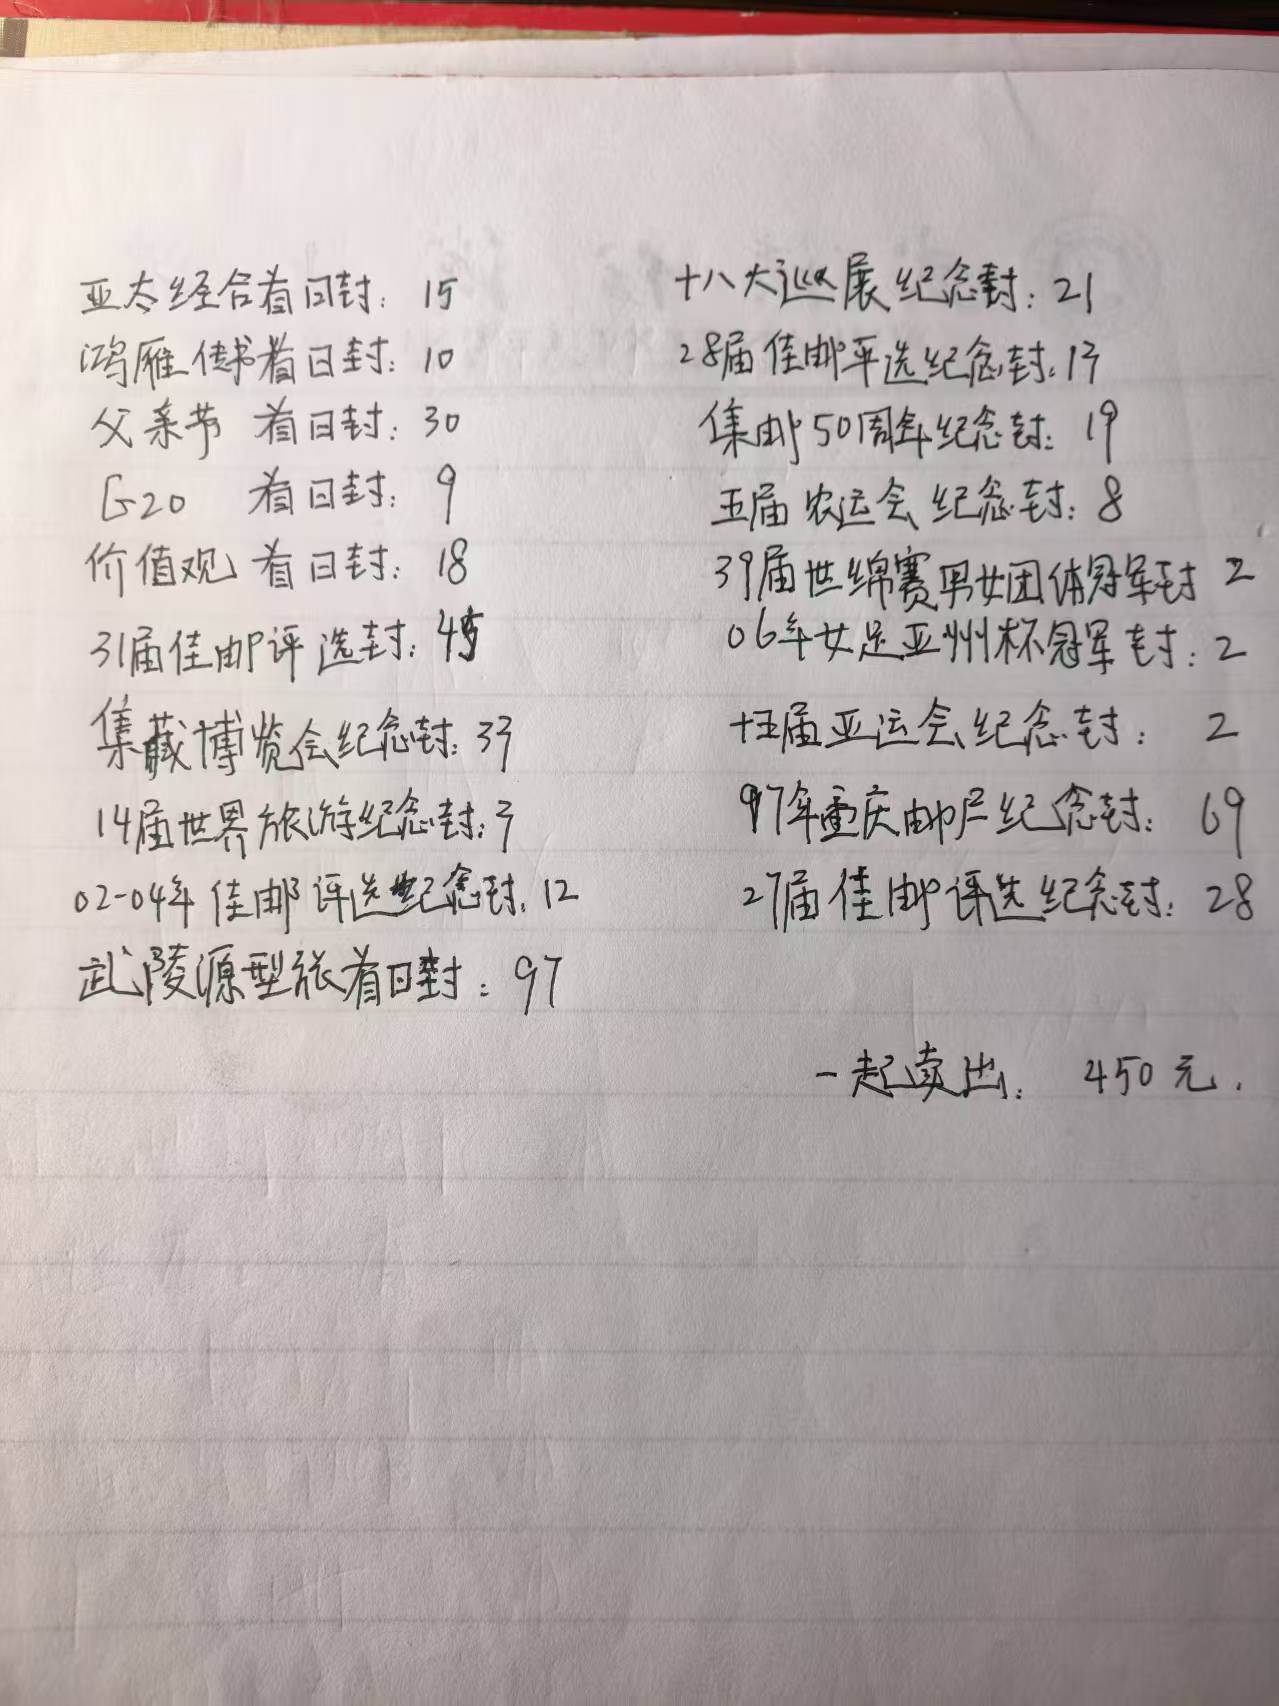 亚太经合首日封: 15
鸿雁传书首日封: 10
父亲节 首日封: 30
G20 首日封: 9
价值观 首日封: 18
31届佳邮评选封: 45
集藏博览会纪念封: 37
14届世界旅游纪念封: 7
02-04年佳邮评选纪念封: 12
武陵源型张首日封: 97
十八大巡展纪念封: 21
28届佳邮评选纪念封: 17
集邮50周年纪念封: 19
五届农运会纪念封: 8
39届世绵赛男女团体冠军封 2
06年女足亚州杯冠军封: 2
十五届亚运会纪念封: 2
97年重庆邮户纪念封: 69
27届佳邮评选纪念封: 28
一起卖出: 450元.